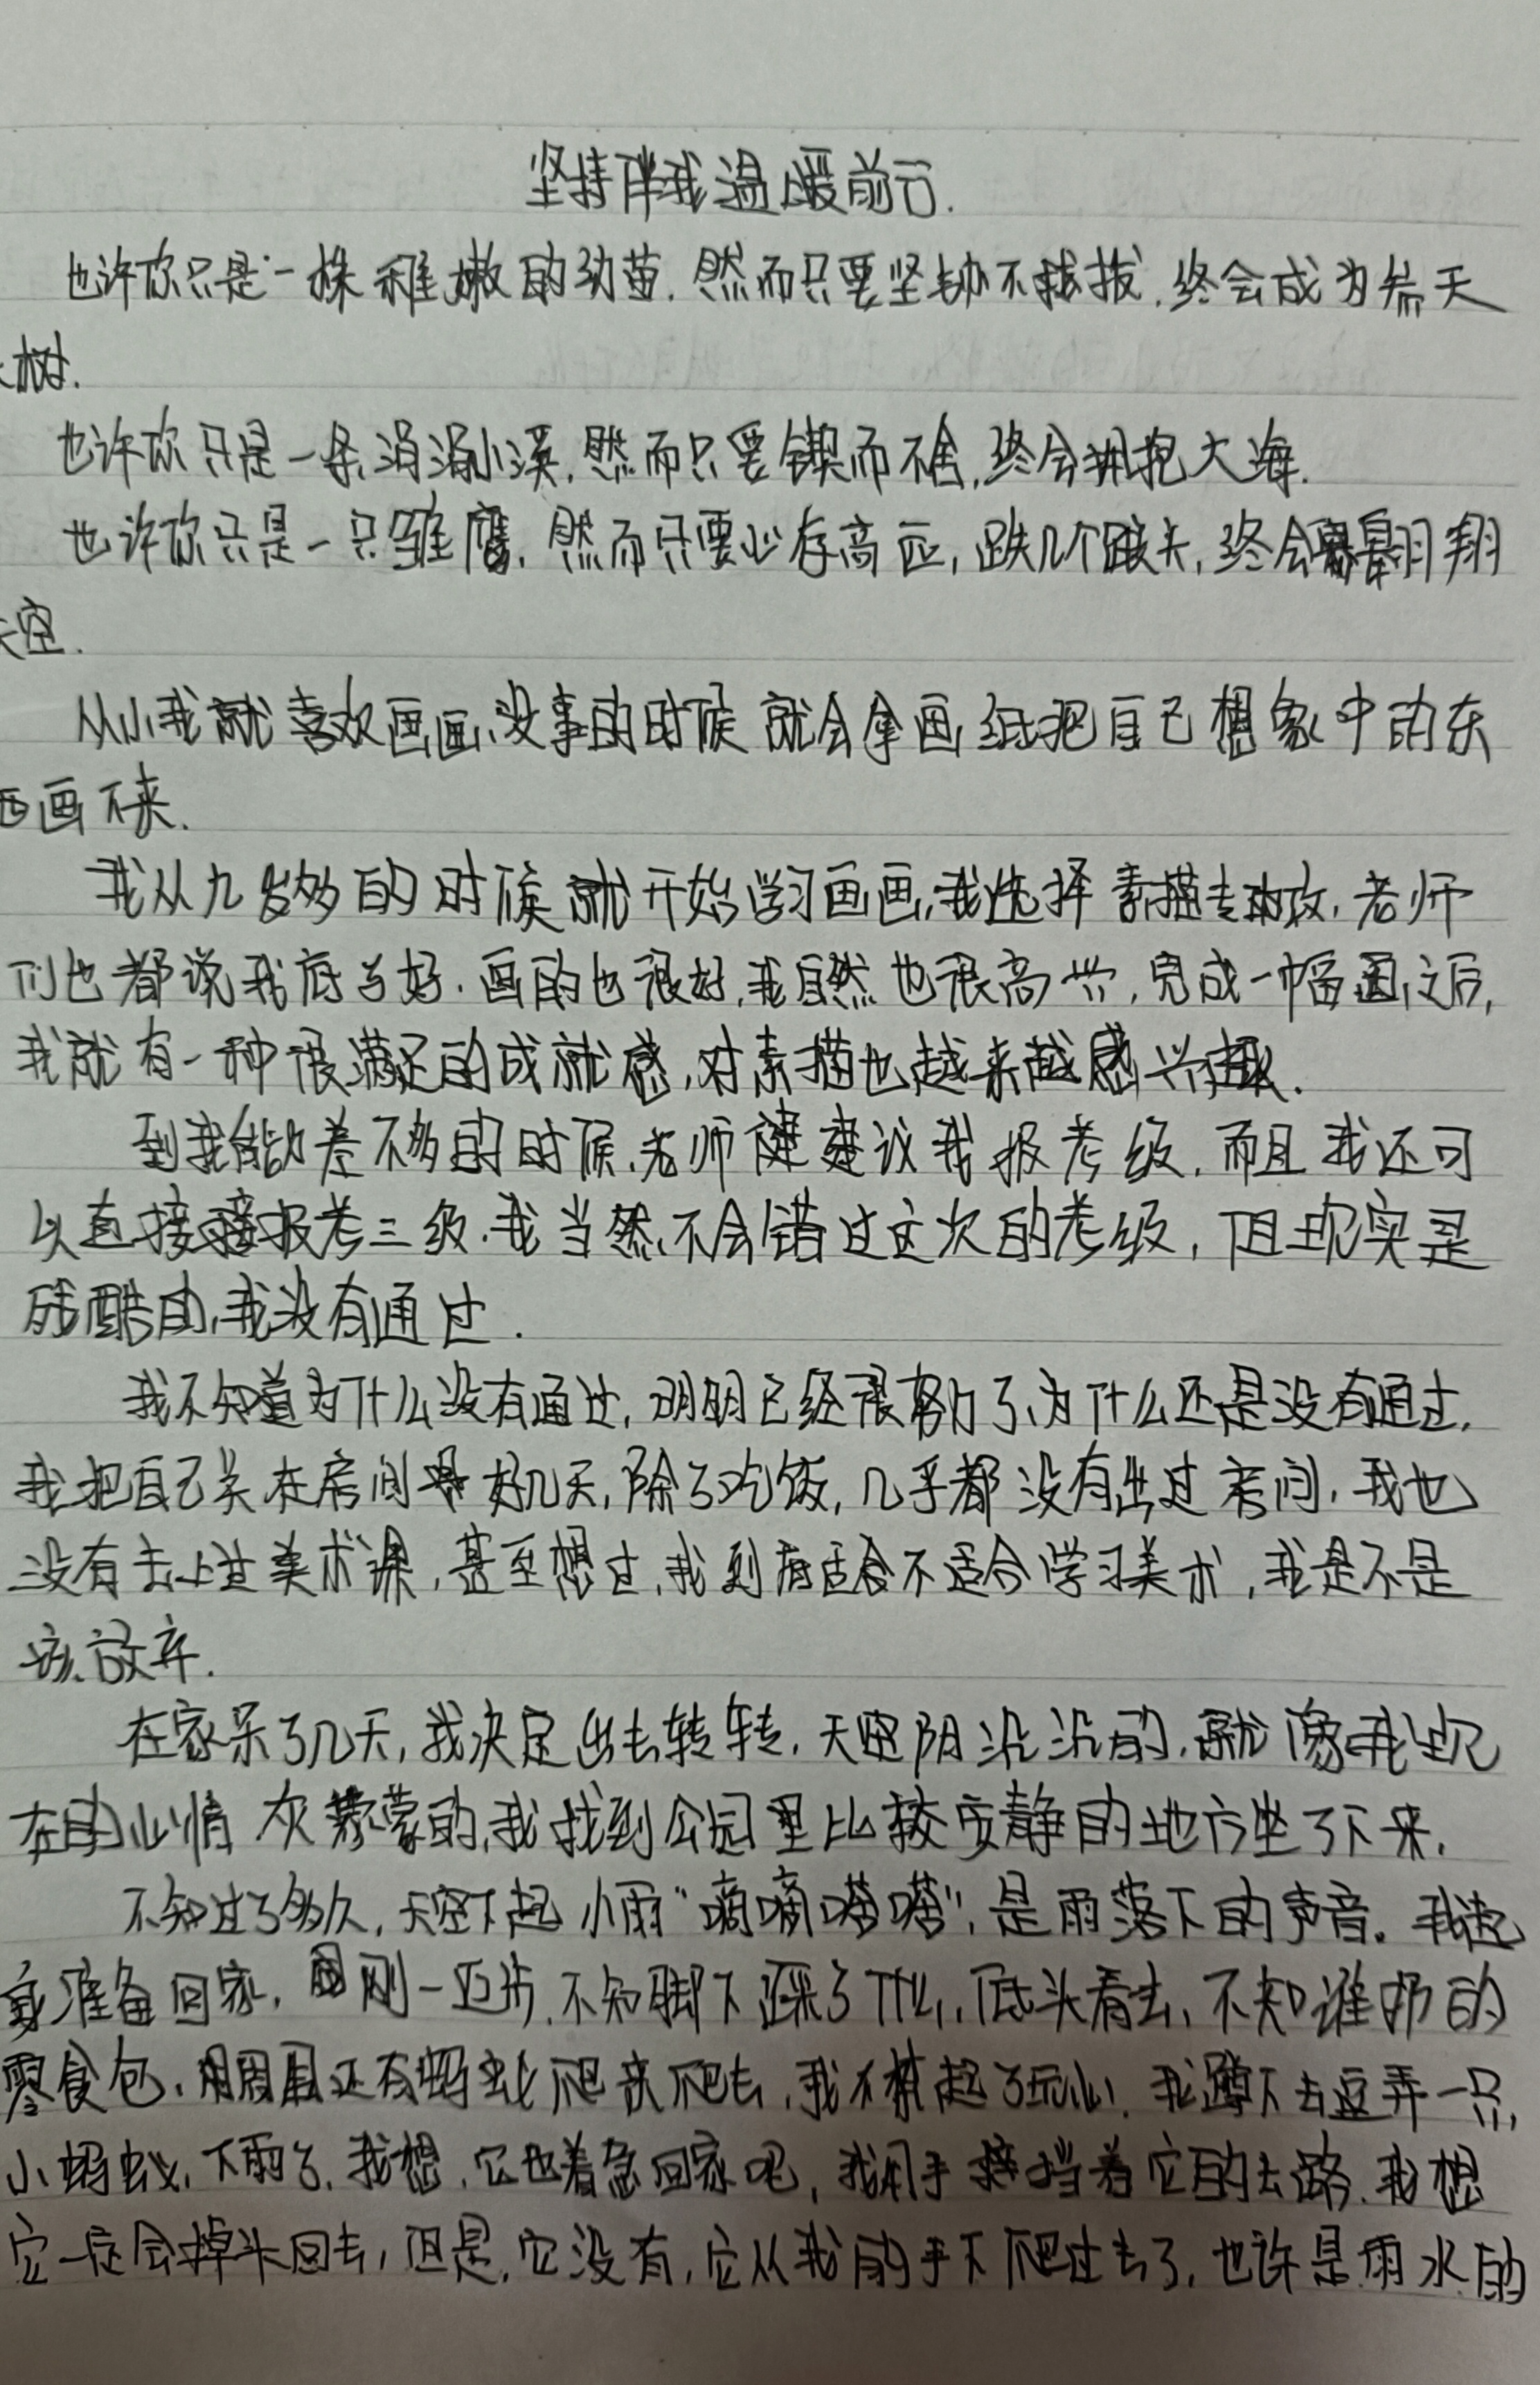 坚持伴我温暖前行.
也许你只是一株稚嫩的幼苗.然而只要坚韧不拔,终会成为参天
大树.
也许你只是一条涓涓小溪,然而只要锲而不舍,终会拥抱大海.
也许你只是一只雏鹰,然而只要心存高远,跌几个跟头,终会翱翔
天空.
从小我就喜欢画画,没事的时候就会拿画纸把自己想象中的东
西画下来.
我从九岁多的时候就开始学习画画,我选择素描专攻,老师
们也都说我底子好.画的也很好,我自然也很高兴,完成一幅画之后,
我就有一种很满足的成就感,对素描也越来越感兴趣.
到我能力差不多的时候,老师建议我报考级,而且我还可
以直接报考三级.我当然不会错过这次的考级,但现实是
残酷的,我没有通过.
我不知道为什么没有通过,明明已经很努力了,为什么还是没有通过,
我把自己关在房间好几天,除了吃饭,几乎都没有出过房间,我也
没有去上过美术课,甚至想过,我到底适合不适合学习美术,我是不是
该放弃.
在家呆了几天,我决定出去转转,天空阴沉沉的,就像我现
在的心情 灰蒙蒙的,我找到公园里比较安静的地方坐了下来,
不知过了多久,天空下起小雨"嘀嘀嗒嗒",是雨落下的声音。我起
身准备回家,刚一迈步,不知脚下踩了什么,低头看去,不知谁扔的
零食包,周围还有蚂蚁爬来爬去,我不禁起了玩心,我蹲下去逗弄一只
小蚂蚁,下雨了,我想,它也着急回家吧,我用手挡着它的去路,我想
它一定会掉头回去,但是,它没有,它从我的手下爬过去了,也许是雨水的